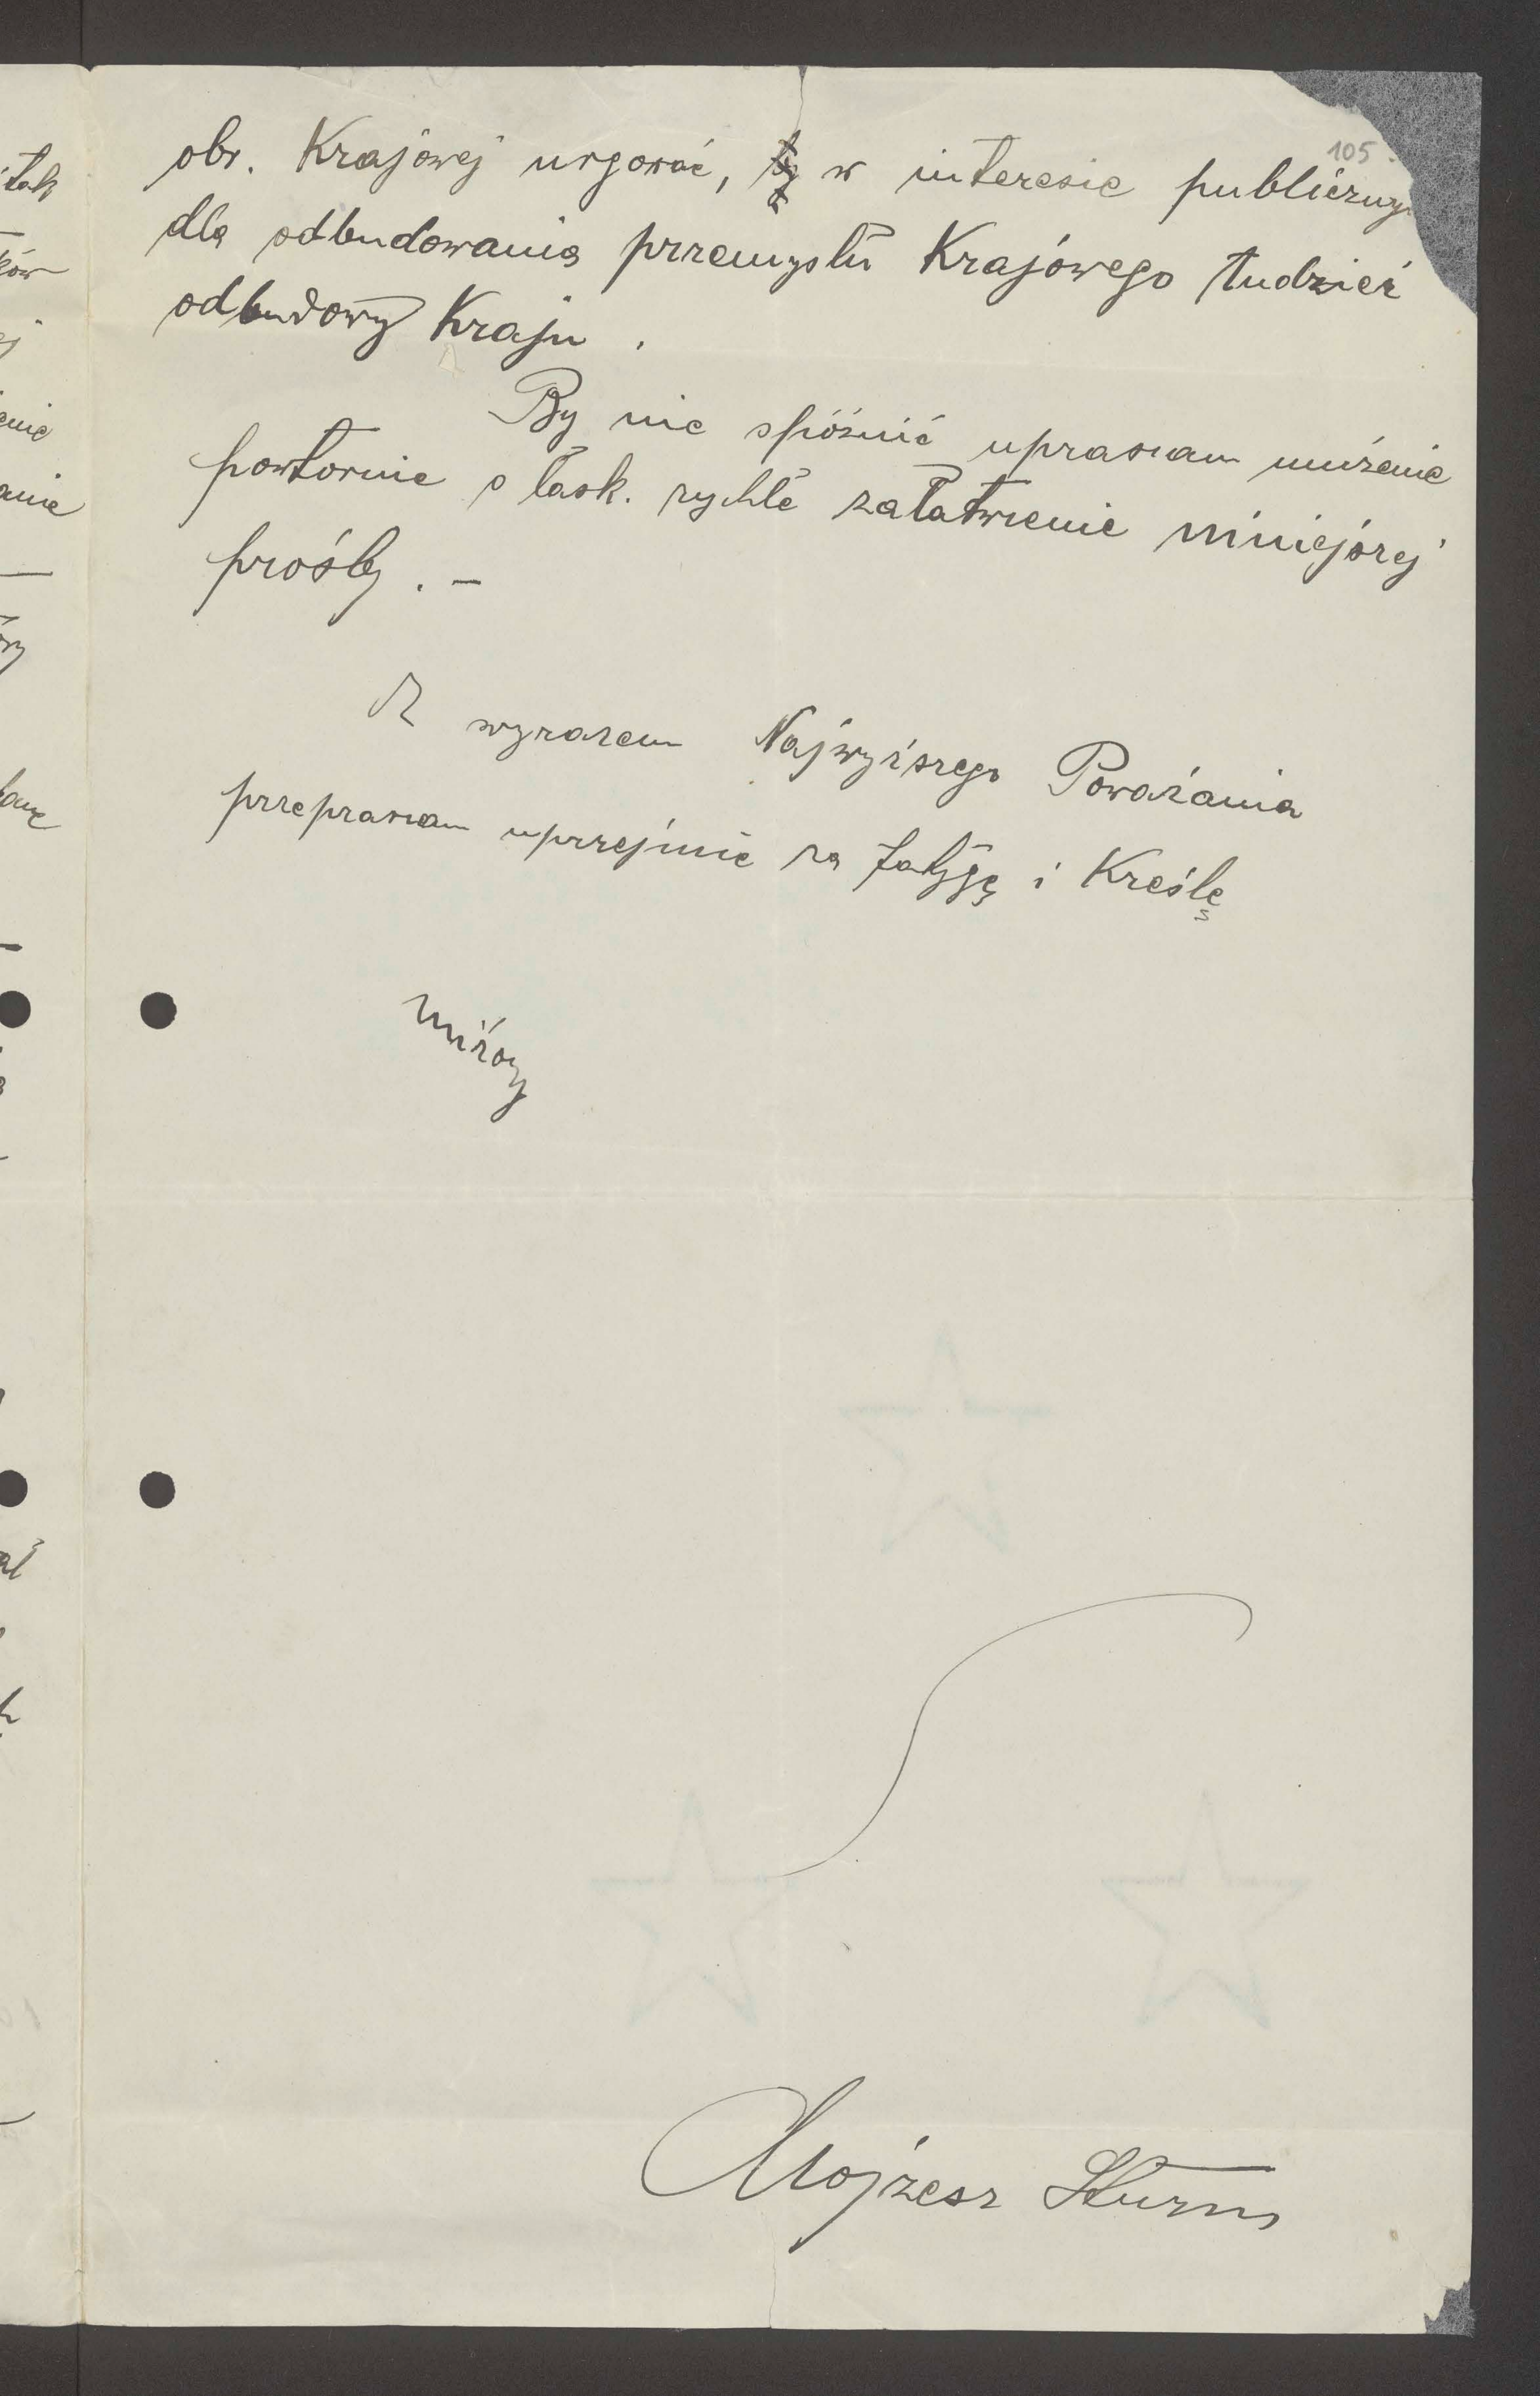 105
obr. Krajowej urgować, w interesie publiczny
dla odbudowania przemysłu Krajowego tudzież
odbudowy Kraju.
By nie spóźnić upraszam uniżenie
powtornie o łask. rychłe załatwienie niniejszej
prośby. –
Z wyrazem Najwyższego Poważania
przepraszam uprzejmie za fatygę i Kreślę
uniżony
Mojżesz Sturm